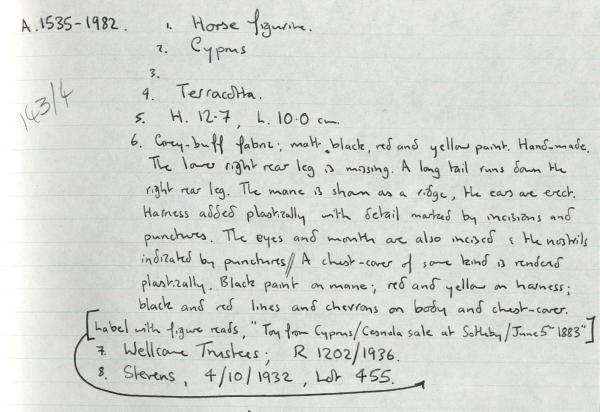 A.1535-1982. 1. Horse figurine.
2. Cyprus
3.
143/4
4. Terracotta.
5. H. 12.7, L. 10.0 cm.
6. Grey-buff fabric; matt black, red and yellow paint. Hand-made.
The lower right rear leg is missing. A long tail runs down the
right rear leg. The mane is shown as a ridge, the ears are erect.
Harness added plastically with detail marked by incisions and
punctures. The eyes and mouth are also incised & the nostrils
indicated by punctures // A chest-cover of some kind is rendered
plastically. Black paint on mane; red and yellow on harness;
black and red lines and chevrons on body and chest-cover.
[Label with figure reads, "Toy from Cyprus/Cesnola sale at Sotheby/June 5th 1883"]
7. Wellcome Trustees; R 1202/1936.
8. Stevens, 4/10/1932, Lot 455.